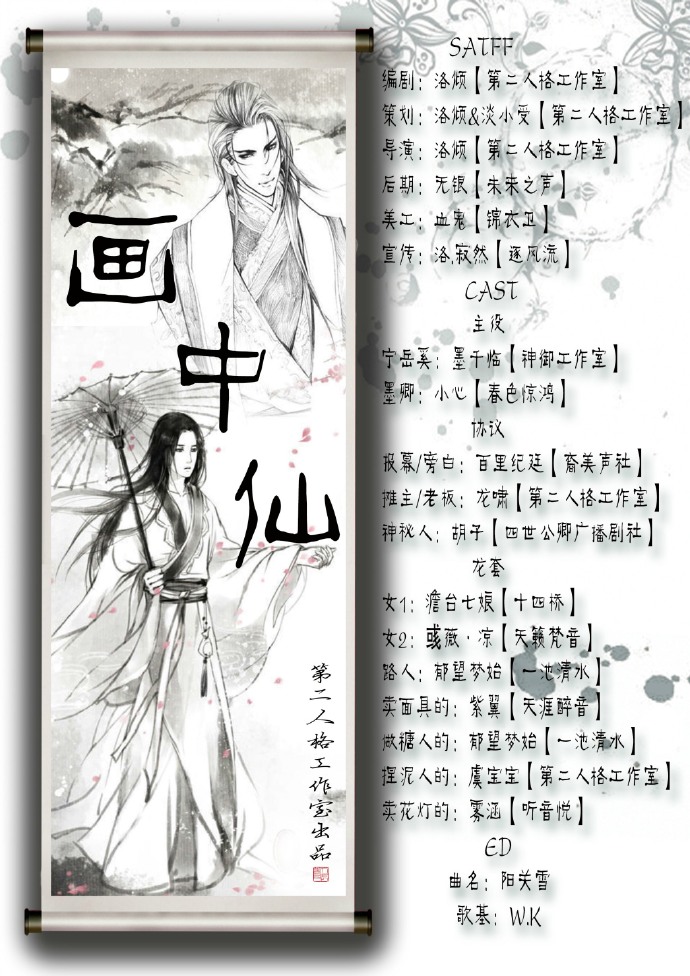 画中仙
第二人格工作室出品
SATFF
编剧：洛烦【第二人格工作室】
策划：洛烦&淡小受【第二人格工作室】
导演：洛烦【第二人格工作室】
后期：无银【未来之声】
美工：血鬼【锦衣卫】
宣传：洛.寂然【逐风流】
CAST
主役
宁岳奚：墨千临【神御工作室】
墨卿：小心【春色惊鸿】
协议
报幕/旁白：百里纪廷【裔美声社】
摊主/老板：龙啸【第二人格工作室】
神秘人：胡子【四世公卿广播剧社】
龙套
女1：澹台七娘【十四桥】
女2：彧薇·凉【天籁梵音】
路人：郁望梦始【一池清水】
卖面具的：紫翼【天涯醉音】
做糖人的：郁望梦始【一池清水】
捏泥人的：虞宝宝【第二人格工作室】
卖花灯的：雾涵【听音悦】
ED
曲名：阳关雪
歌基：W.K